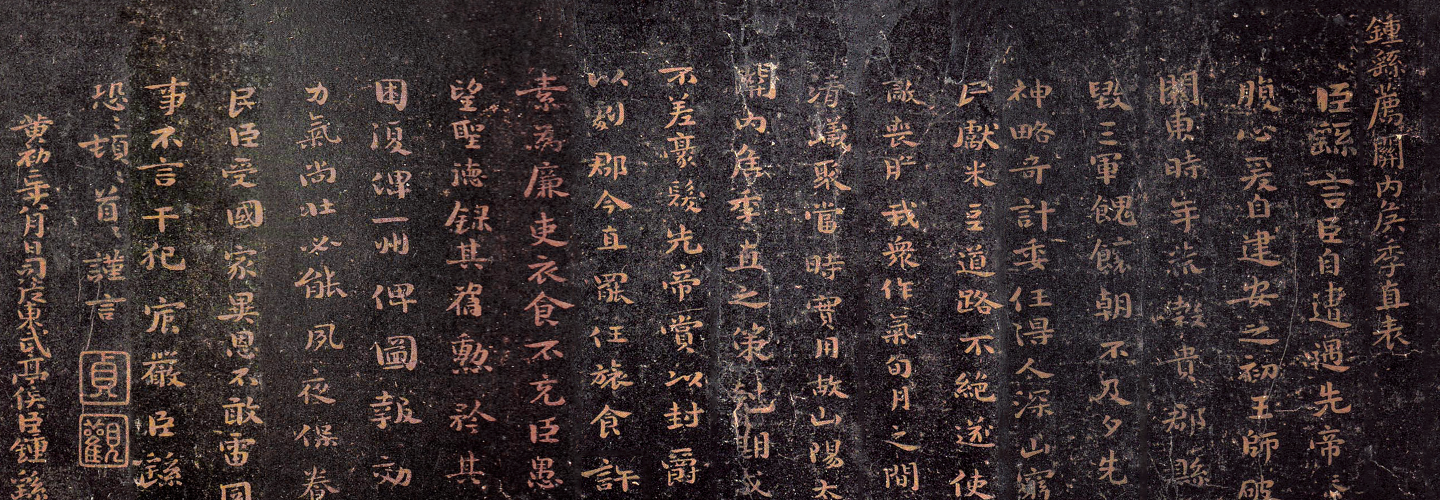 鍾繇薦關內侯季直表
臣繇言臣自遭遇先帝
腹心爰自建安之初王師破
關東時年荒穀貴郡縣
毀三軍餽饟朝不及夕先
神略奇計委任得人深山窮
民獻米豆道路不絕遂使
敵喪膽我眾作氣旬月之間
清蟻聚當時實用故山陽太
關內侯季直之策剋期成
不差豪髮先帝賞以封爵
以劇郡今直罷任旅食許
素為廉吏衣食不充臣愚
望聖德錄其舊勳矜其
困復俾一州俾圖報効
力氣尚壯必能夙夜保養
民臣受國家異恩不敢雷同
事不言干犯宸嚴臣繇
恐〻頓〻首〻謹言
貞觀
黃初二年八月日司徒東武亭侯臣鍾繇